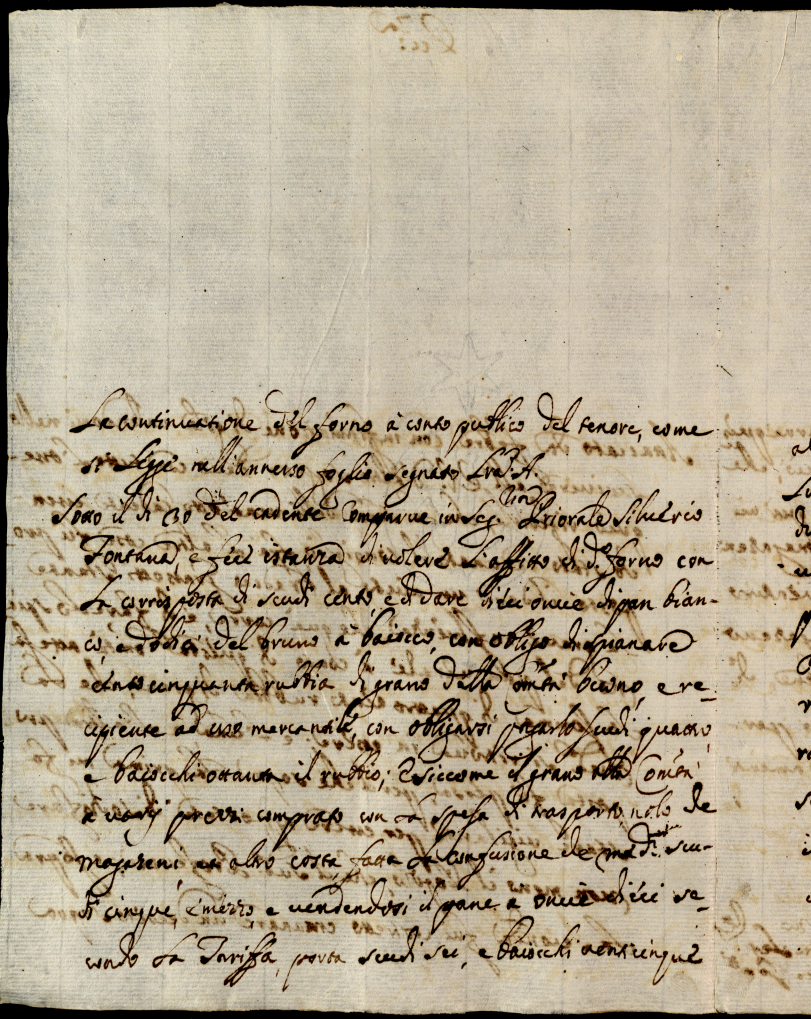 La continuatione del forno à conto publico del tenore, come
si legge nell'annesso foglio segnato Lra. A.
Sotto il di 30 del cadente comparue in Seg.ria Priorale Siluerio
Fontana, e fece istanza di uolere l'affitto di do. forno con
la corrisposta di scudi cento, e di dare dieci oncie di pan bian-
co, e dodici del bruno à baiocco, con obligo di spianare
cento cinquanta rubbia di grano della Comtà buono, e re-
cipiente ad uso mercantile, con obligarsi pagarlo scudi quattro,
e baiocchi ottanta il rubbio; E siccome il grano della Comtà
à varij prezzi comprato con la spesa di trasporto, nolo de
magazeni et altro costa, fatta la confusione de med.mi scu-
di cinque, e mezzo e uendendosi il pane a oncie dieci se-
condo la Tariffa, porta scudi sei, e baiocchi uenticinque